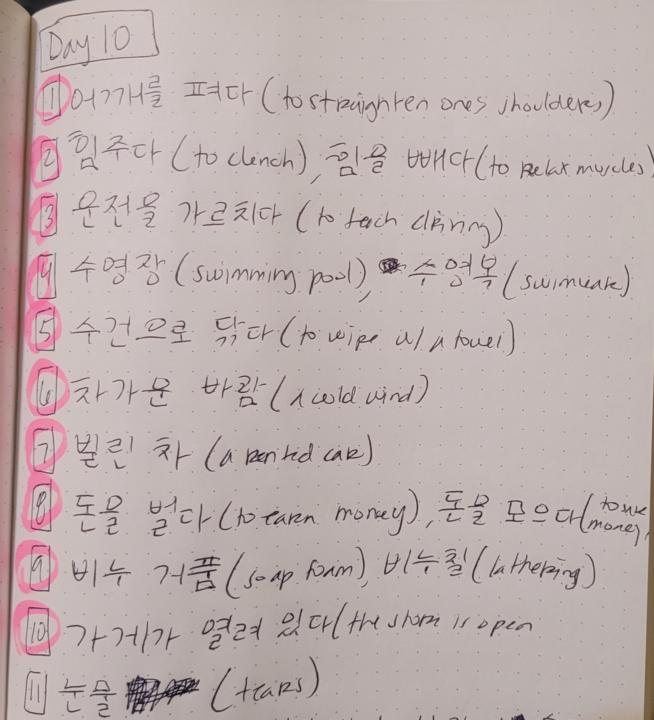 Day 10
1 어깨를 펴다 (to straighten ones shoulders)
2 힘주다 (to clench), 힘을 빼다 (to relax muscles)
3 운전을 가르치다 (to teach driving)
4 수영장 (swimming pool), 수영복 (swimware)
5 수건으로 닦다 (to wipe w/ a towel)
6 차가운 바람 (a cold wind)
7 빌린 차 (a rented car)
8 돈을 벌다 (to earn money), 돈을 모으다 (to money)
9 비누 거품 (soap foam), 비누칠 (lathering)
10 가게가 열려 있다 (the store is open
11 눈물 (tears)